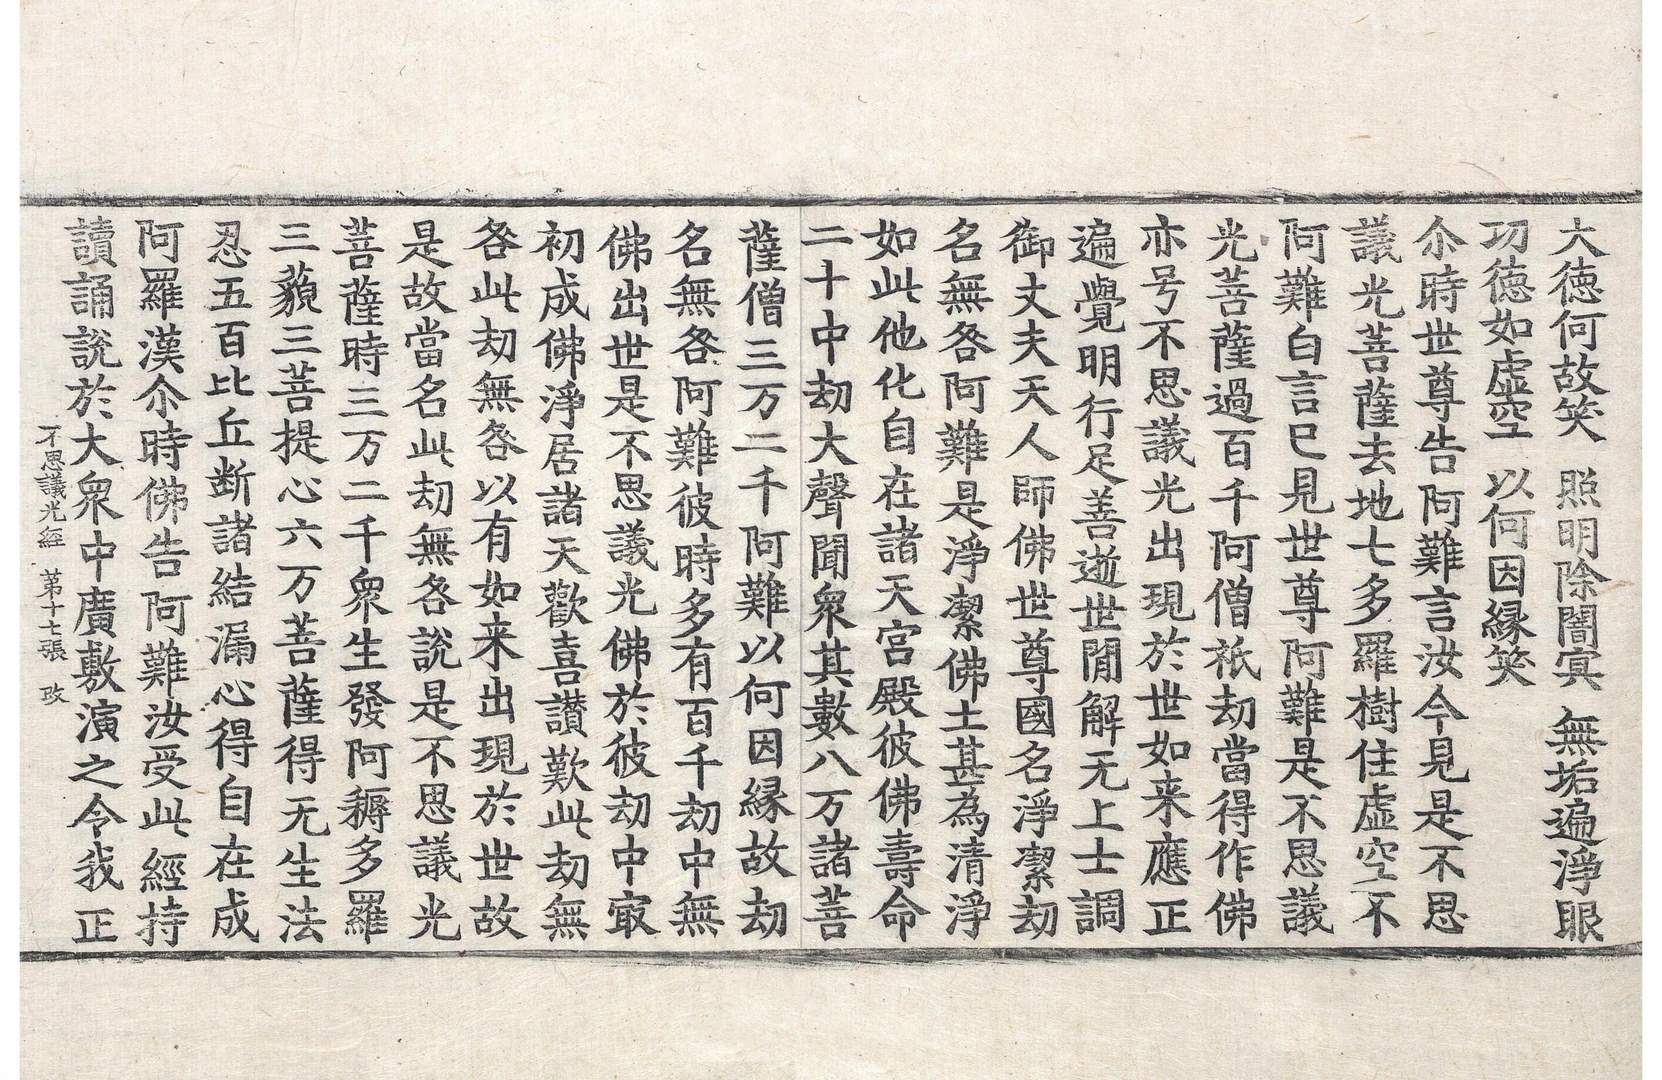 大徳何故笑　照明除闇㝠　無垢遍淨眼
功徳如虛空　以何因縁笑
尒時世尊告阿難言汝今見是不思
議光菩薩去地七多羅樹住虛空不
阿難白言已見世尊阿難是不思議
光菩薩過百千阿僧祇劫當得作佛
亦号不思議光出現於世如来應正
遍覺明行足善逝世閒解无上士調
御丈夫天人師佛世尊國名淨潔劫
名無咎阿難是淨潔佛土甚為清淨
如此他化自在諸天宮殿彼佛壽命
二十中劫大聲聞衆其數八万諸菩
薩僧三万二千阿難以何因縁故劫
名無咎阿難彼時多有百千劫中無
佛出世是不思議光佛於彼劫中㝡
初成佛淨居諸天歡喜讃歎此劫無
咎此劫無咎以有如来出現於世故
是故當名此劫無咎説是不思議光
菩薩時三万二千衆生發阿耨多羅
三藐三菩提心六万菩薩得无生法
忍五百比丘断諸結漏心得自在成
阿羅漢尒時佛告阿難汝受此經持
讀誦説於大衆中廣敷演之令我正
不思議光經　第十七張　改